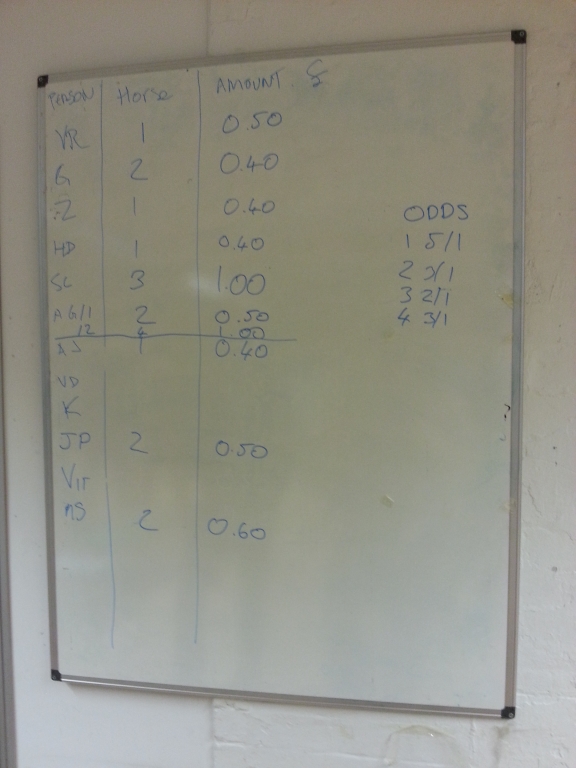 PERSON Horse AMOUNT £
VR 1 0.50
G 2 0.40
Z 1 0.40
HD 1 0.40
SC 3 1.00
AG/1 2 0.50
12 4 1.00
AJ 1 0.40
VD
K
JP 2 0.50
VIT
MS 2 0.60
ODDS
1 5/1
2 /1
3 2/1
4 3/1